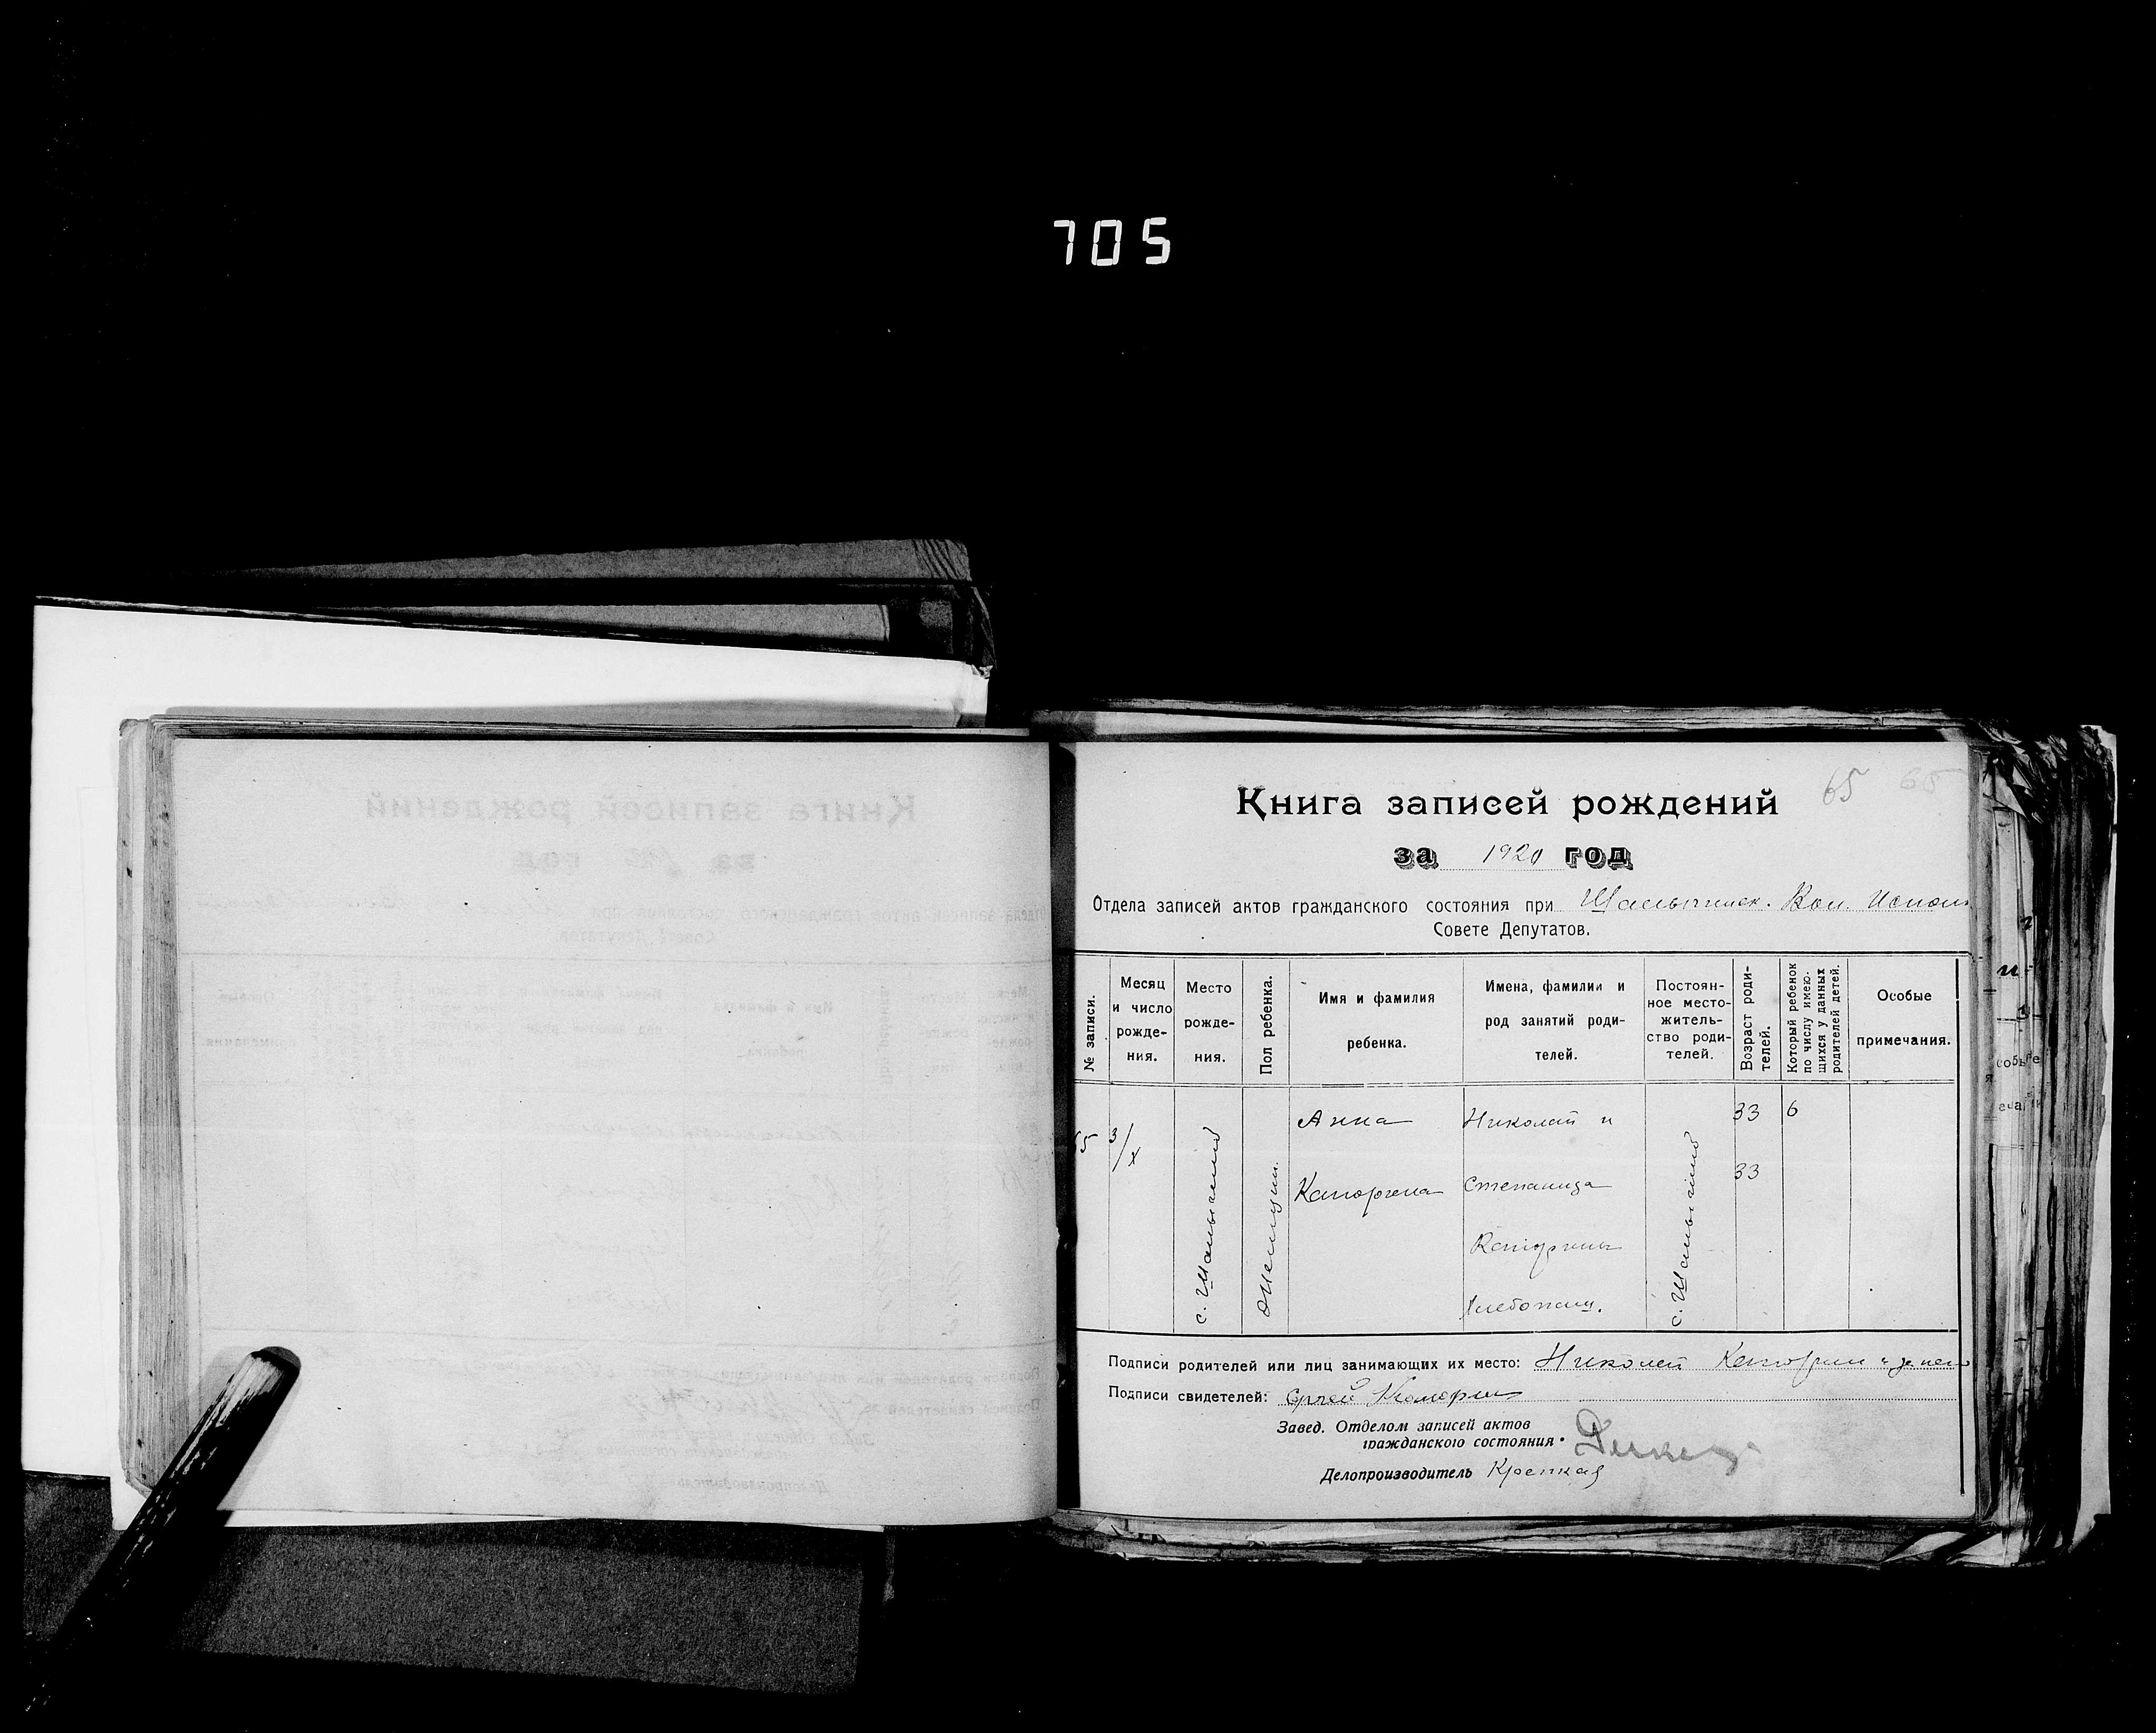 705
65 65
Книга записей рождений
за 1920 год
Отдела записей актов гражданского состояния при Шалыгинск. Вол. Испол
Совете Депутатов.
№ записи.
Месяц и число рожде- ния.
Место рожде- ния.
Пол ребенка.
Имя и фамилия ребенка.
Имена, фамилии и род занятий роди- телей.
Постоян- ное место- житель- ство роди- телей.
Возраст роди- телей.
Который ребенок по числу имею- щихся у данных родителей детей.
Особые примечания.
65
3/X
с. Шалыгино
Женщин.
Анна
Каторгина
Николай и
Степанида
Каторгины
Хлебопаш.
с. Шалыгино
33
33
6
Подписи родителей или лиц занимающих их место: Николай Каторгин
Подписи свидетелей: Сергей
Завед. Отделом записей актов
гражданского состояния
Делопроизводитель Крепкая